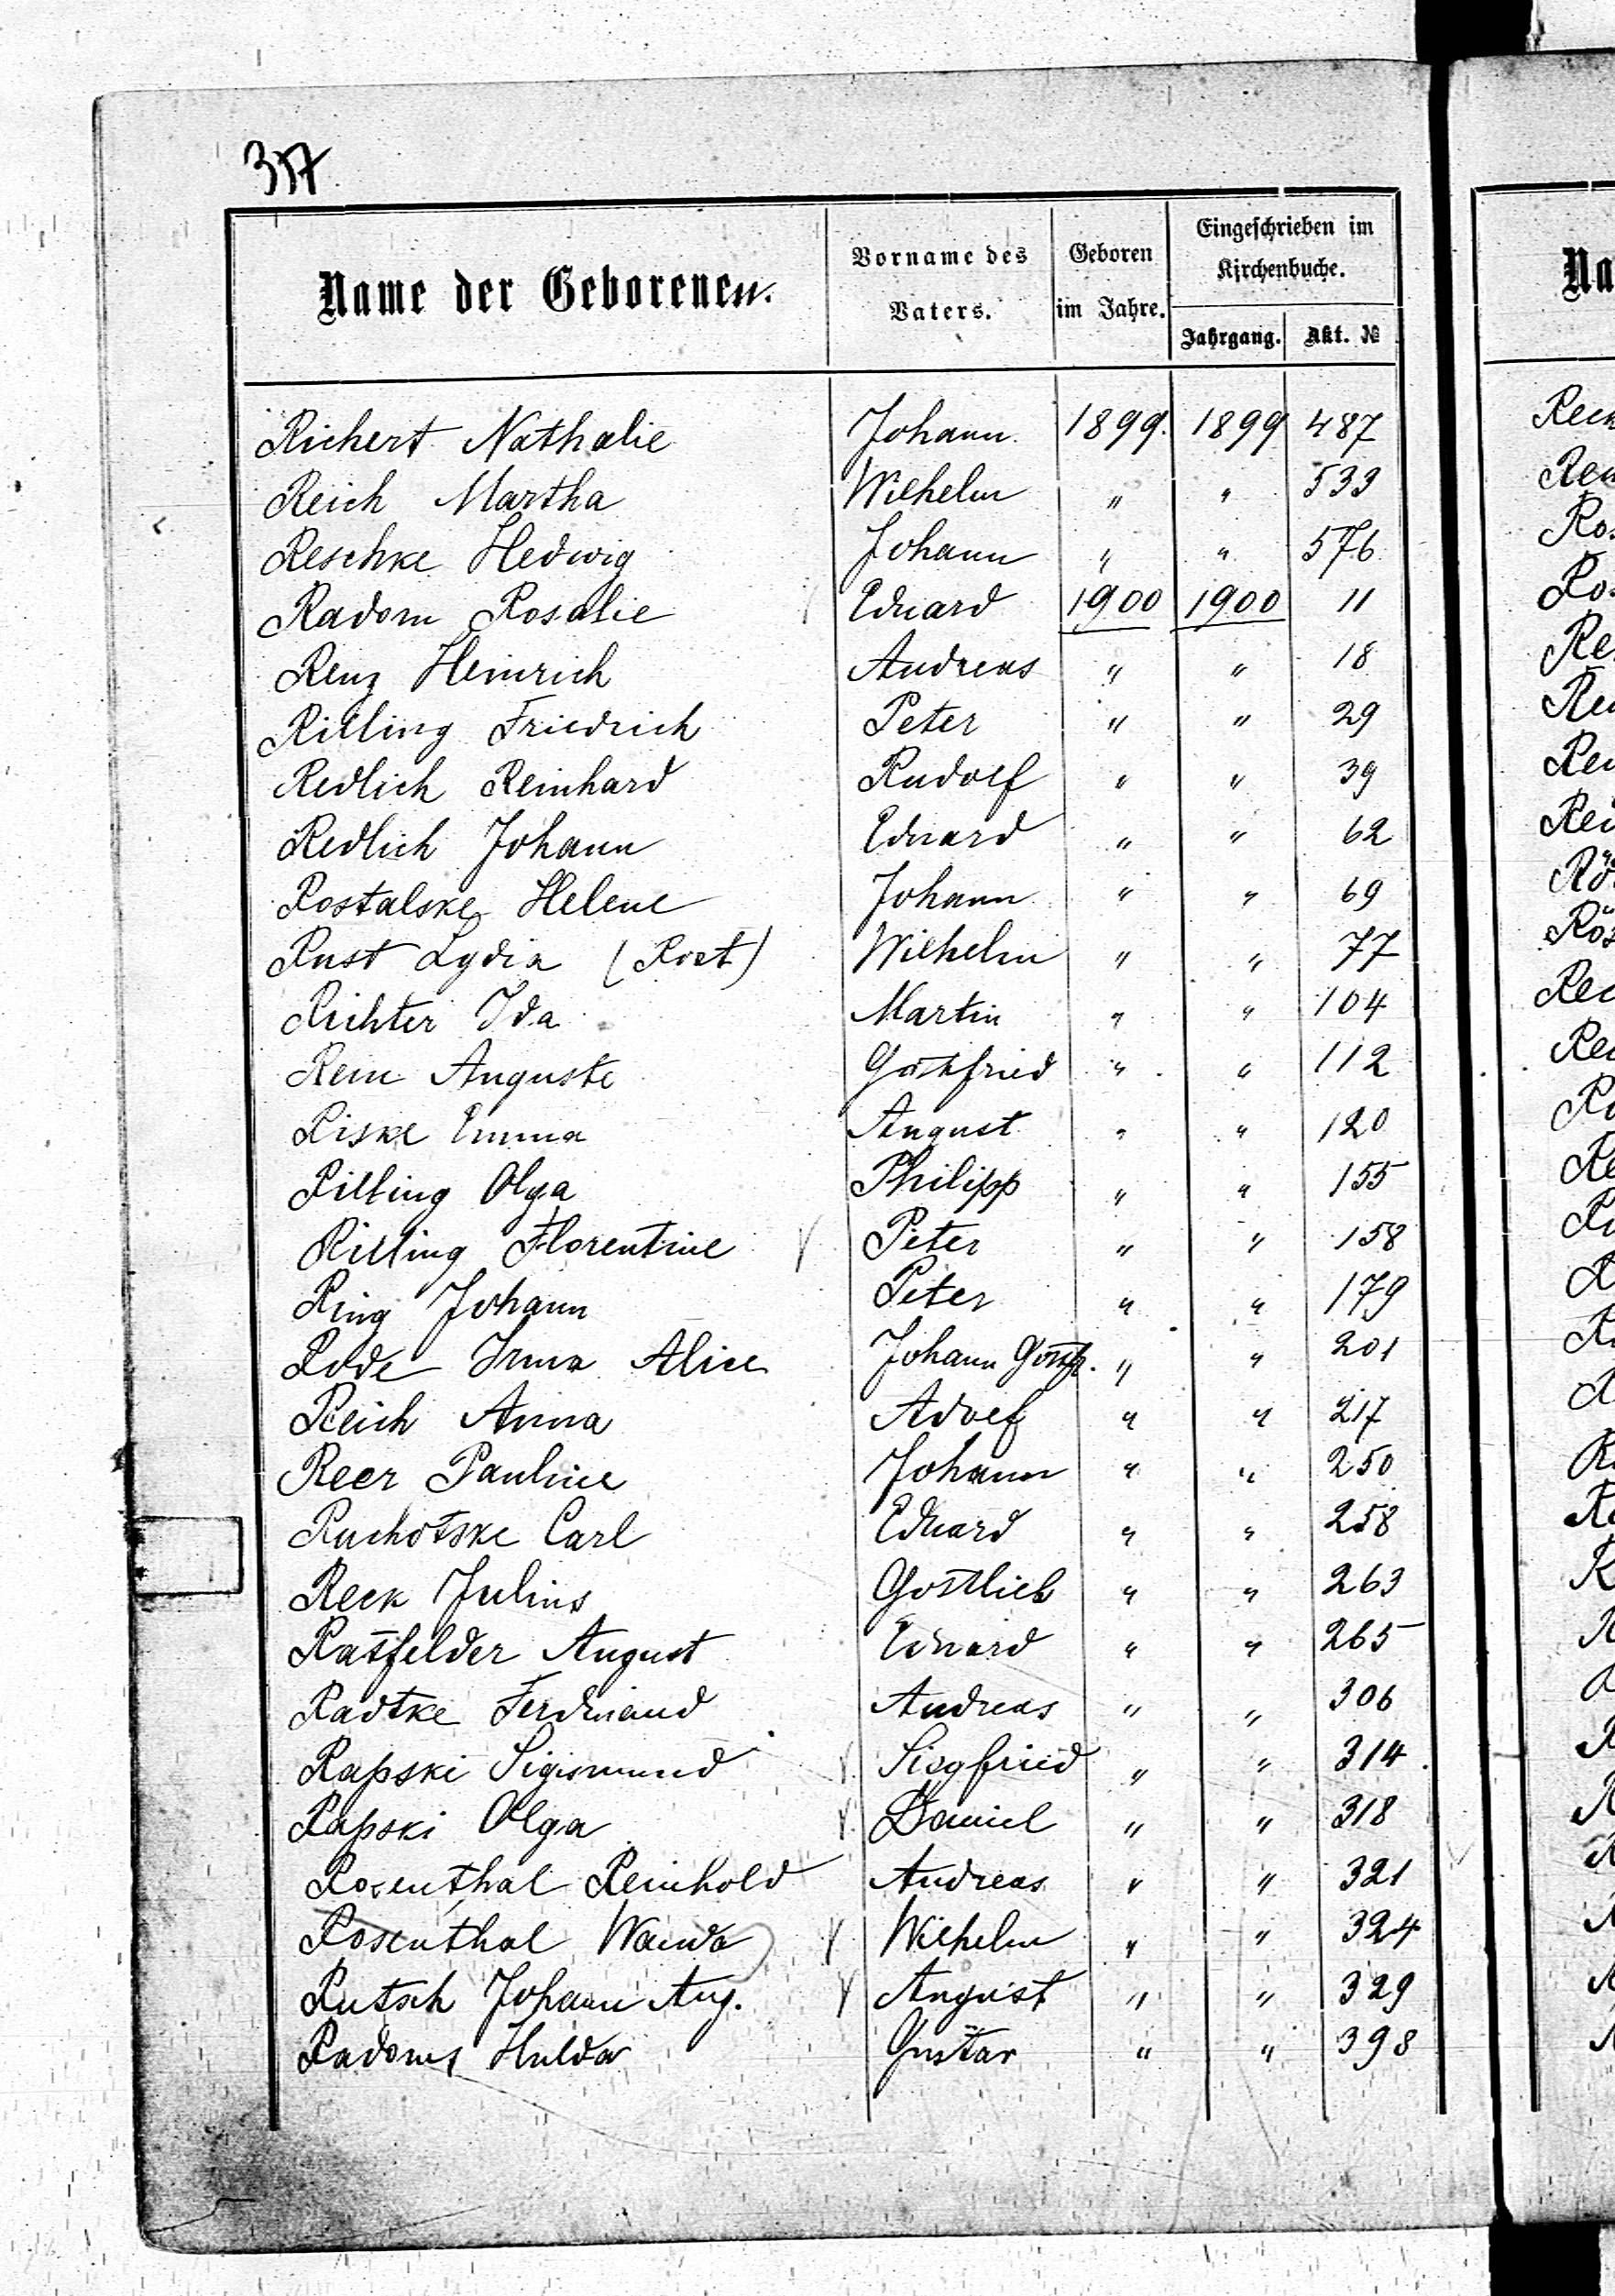 357
Name der Geborenen. Vorname des Vaters. Geboren im Jahre. Eingeschrieben im Kirchenbuche. Jahrgang. Akt. №
Richert Nathalie Johann 1899. 1899 487
Reich Martha Wilhelm " " 533
Reschke Hedwig Johann " " 576
Radom Rosalie Eduard 1900 1900 11
Renz Heinrich Andreas " " 18
Rilling Friedrich Peter " " 29
Redlich Reinhard Rudolf " " 39
Redlich Johann Eduard " " 62
Rostalske Helene Johann " " 69
Rust Lydia (Rost) Wilhelm " " 77
Richter Ida Martin " " 104
Rem Auguste Gottfried " " 112
Riske Emma August " " 120
Rilling Olga Philipp " " 155
Rilling Florentine Peter " " 158
Ring Johann Peter " " 179
Rode Irma Alice Johann Gottfr. " " 201
Reich Anna Adolf " " 217
Reer Pauline Johann " " 250
Ruchotske Carl Eduard " " 258
Reck Julius Gottlieb " " 263
Ratfelder August Eduard " " 265
Radtke Ferdinand Andreas " " 306
Rapski Sigismund Siegfried " " 314
Rapski Olga Daniel " " 318
Rosenthal Reinhold Andreas " " 321
Rosenthal Wanda Wilhelm " " 324
Rutsch Johann Aug. August " " 329
Radoms Hulda Gustav " " 398